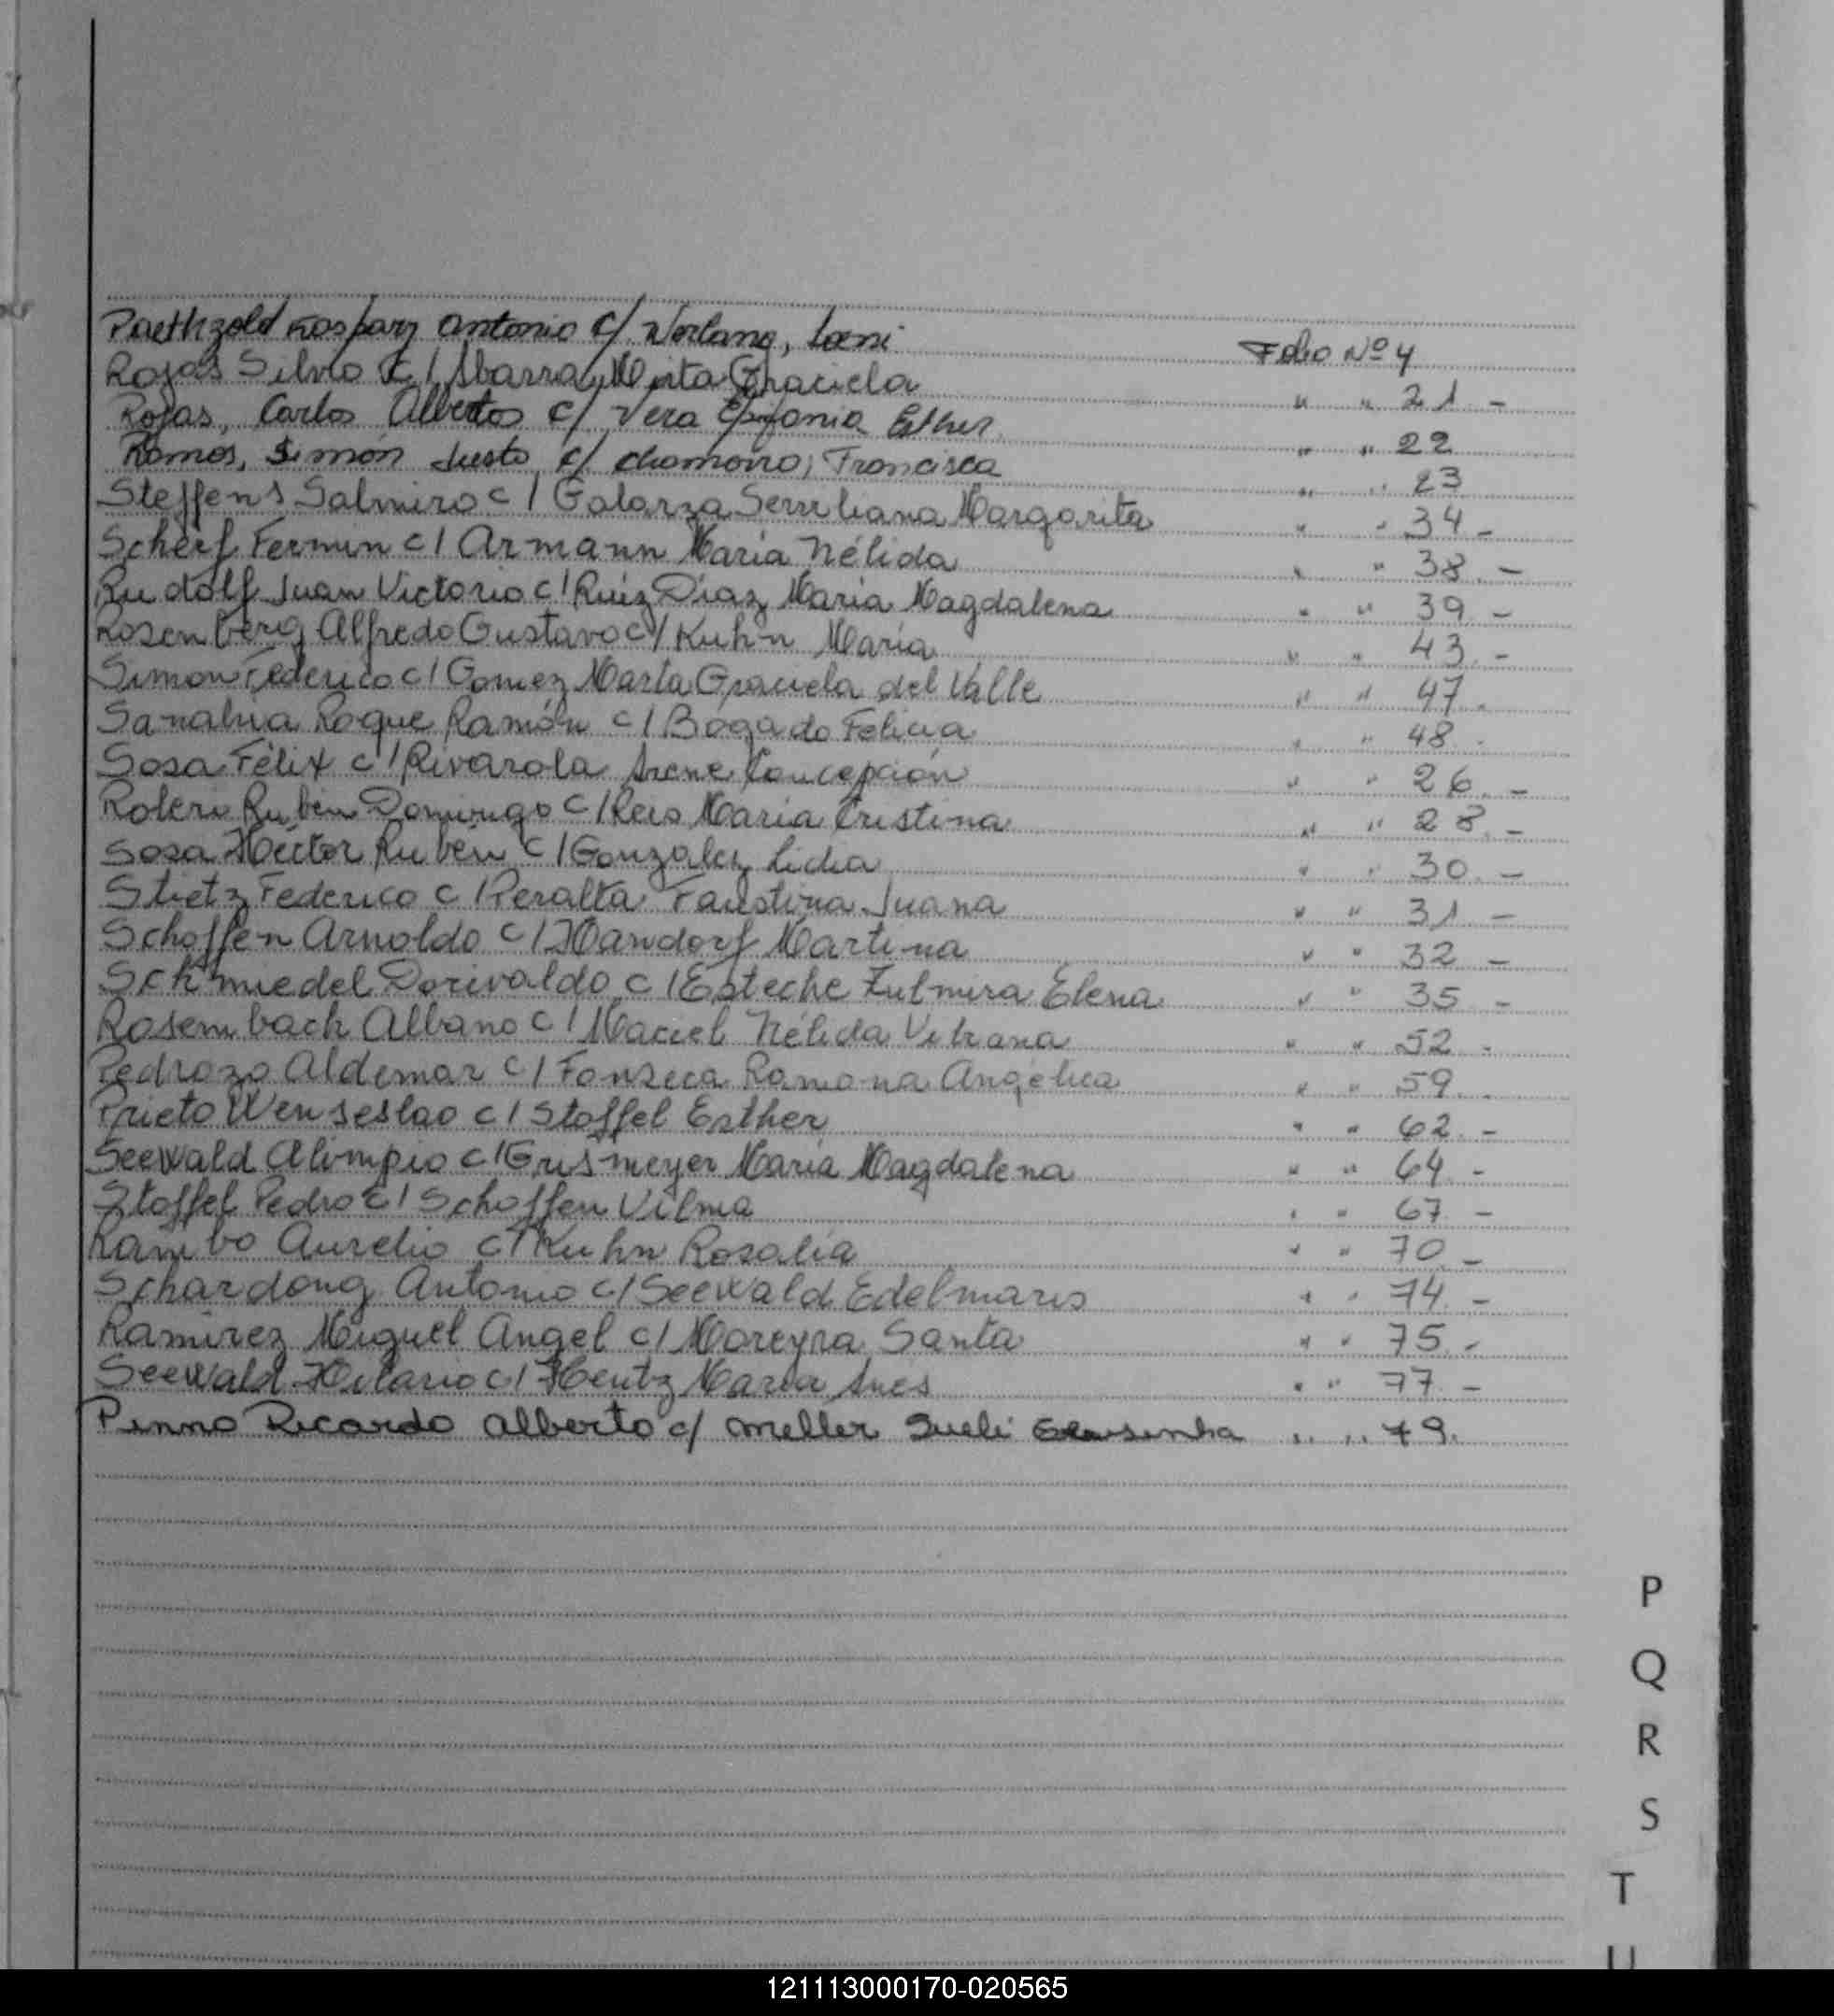 Paethzold Kaspary Antonio c/ Werlang, Loeni Folio Nº 4
Rojas Silvio c/ Ibarra Mirta Graciela " " 21.-
Rojas, Carlos Alberto c/ Vera Epifania Esther " " 22
Ramos, Simón Justo c/ Chamorro, Francisca " " 23
Steffens Salmiro c/ Galarza Serviliana Margarita " " 34.-
Scherf Fermin c/ Armann Maria Nélida " " 38.-
Rudolf Juan Victorio c/ Ruiz Diaz Maria Magdalena " " 39.-
Rosenberg Alfredo Gustavo c/ Kuhn María " " 43.-
Simon Federico c/ Gomez Marta Graciela del Valle " " 47.
Sanabria Roque Ramón c/ Bogado Felicia " " 48.
Sosa Félix c/ Rivarola Irene Concepción " " 26.-
Rubén Domingo c/ Reis Maria Cristina " " 28.-
Sosa Héctor Rubén c/ Gonzalez Lidia " " 30.-
Stietz Federico c/ Peralta Faustina Juana " " 31.-
Schoffen Arnoldo c/ Handorf Martina " " 32.-
Schmiedel Dorivaldo c/ Esteche Zulmira Elena " " 35.-
Rosembach Albano c/ Maciel Nélida Vibiana " " 52.-
Pedrozo Aldemar c/ Fonseca Ramona Angélica " " 59.
Prieto Wenseslao c/ Stoffel Esther " " 62.-
Seewald Alimpio c/ Grismeyer Maria Magdalena " " 64.-
Stoffel Pedro c/ Schoffen Vilma " " 67.-
Rambo Aurelio c/ Kuhn Rosalía " " 70.-
Schardong Antonio c/ Seewald Edelmaris " " 74.-
Ramirez Miguel Angel c/ Moreyra Santa " " 75.-
Seewald Hilario c/ Hentz María Ines " " 77.-
Pinno Ricardo Alberto c/ Meller Sueli " " 79.
P
Q
R
S
T
U
121113000170-020565